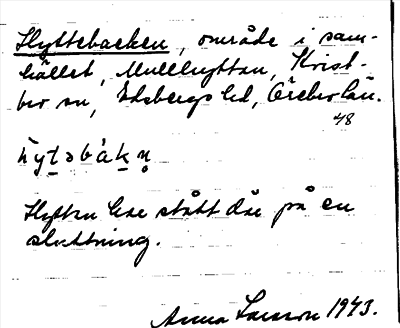 Hyttebacken, område i sam-
hället, Mullhyttan, Kvist-
bro sn, Edsbergs hd, Örebro län.
48
hytəbàkn̥
Hyttan har stått där på en
sluttning.
Anna Larsson 1943.